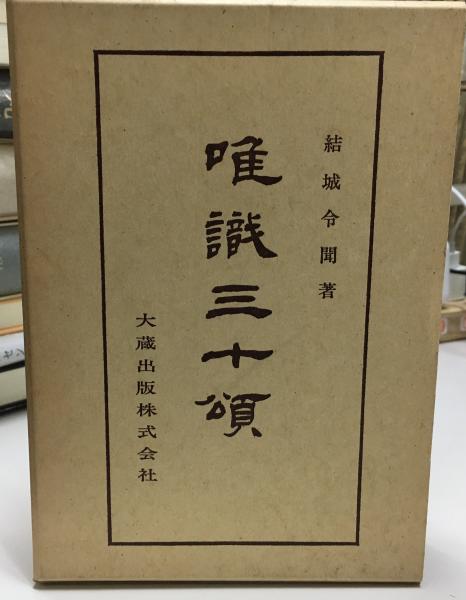 結城令聞著
唯識三十頌
大蔵出版株式会社